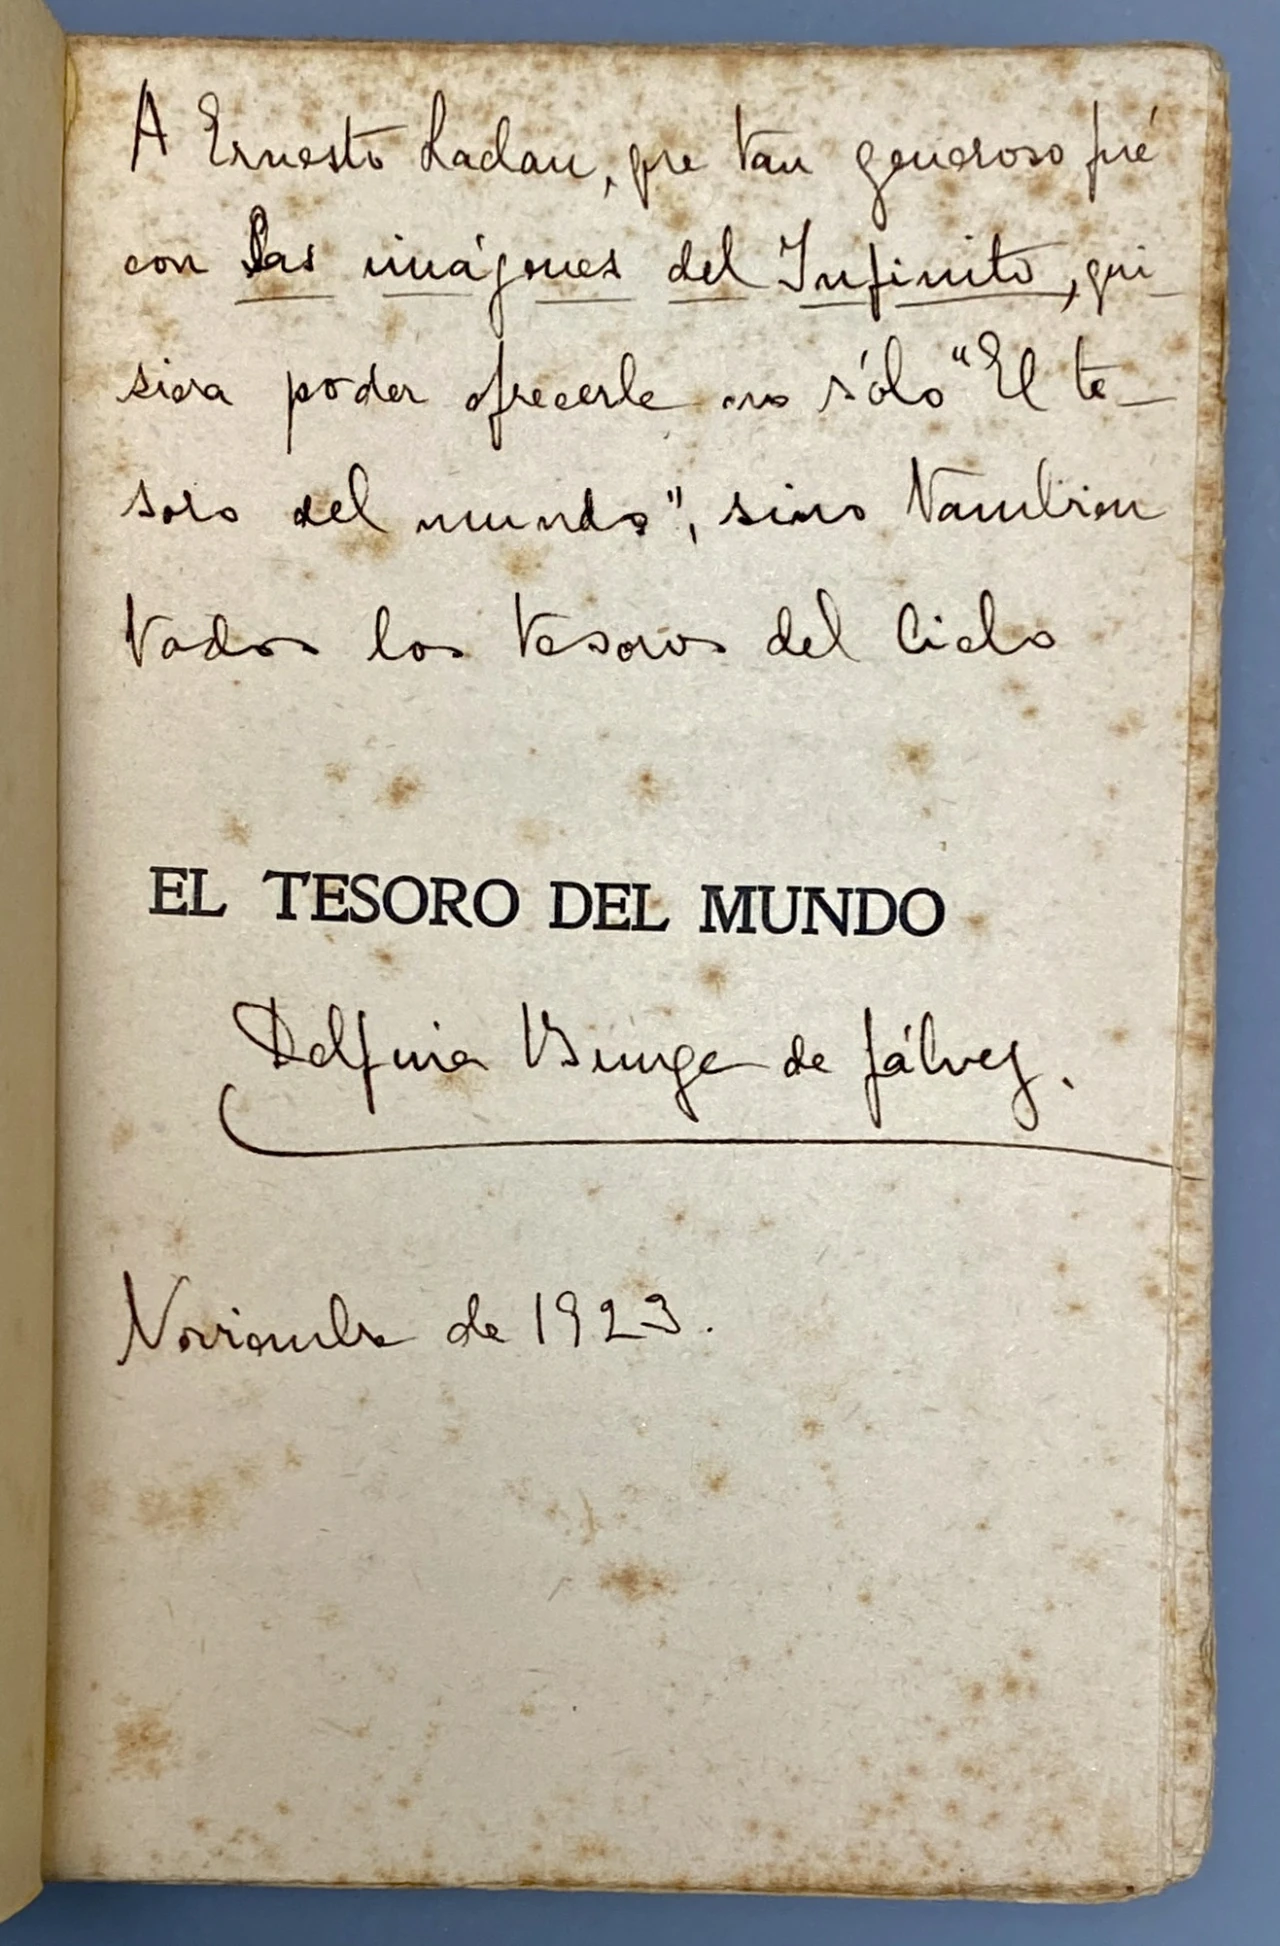 A Ernesto Laclau, que tan generoso fué
con Las imágenes del Infinito, qui_
siera poder ofrecerle no sólo "El te_
soro del mundo", sino tambien
todos los tesoros del Cielo
EL TESORO DEL MUNDO
Delfina Bunge de Gálvez.
Noviembre de 1923.